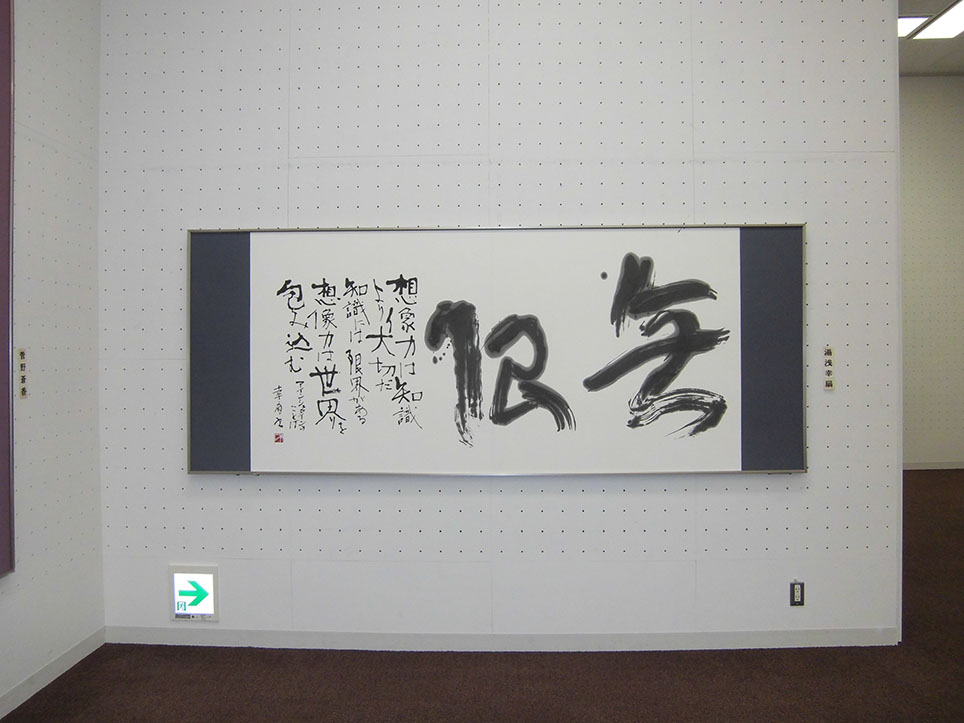 無限
想像力は知識
より大切だ
知識には限界がある
想像力は世界を
包み込む
アインシュタインの
ことば
湯浅幸扇
菅野蒼香